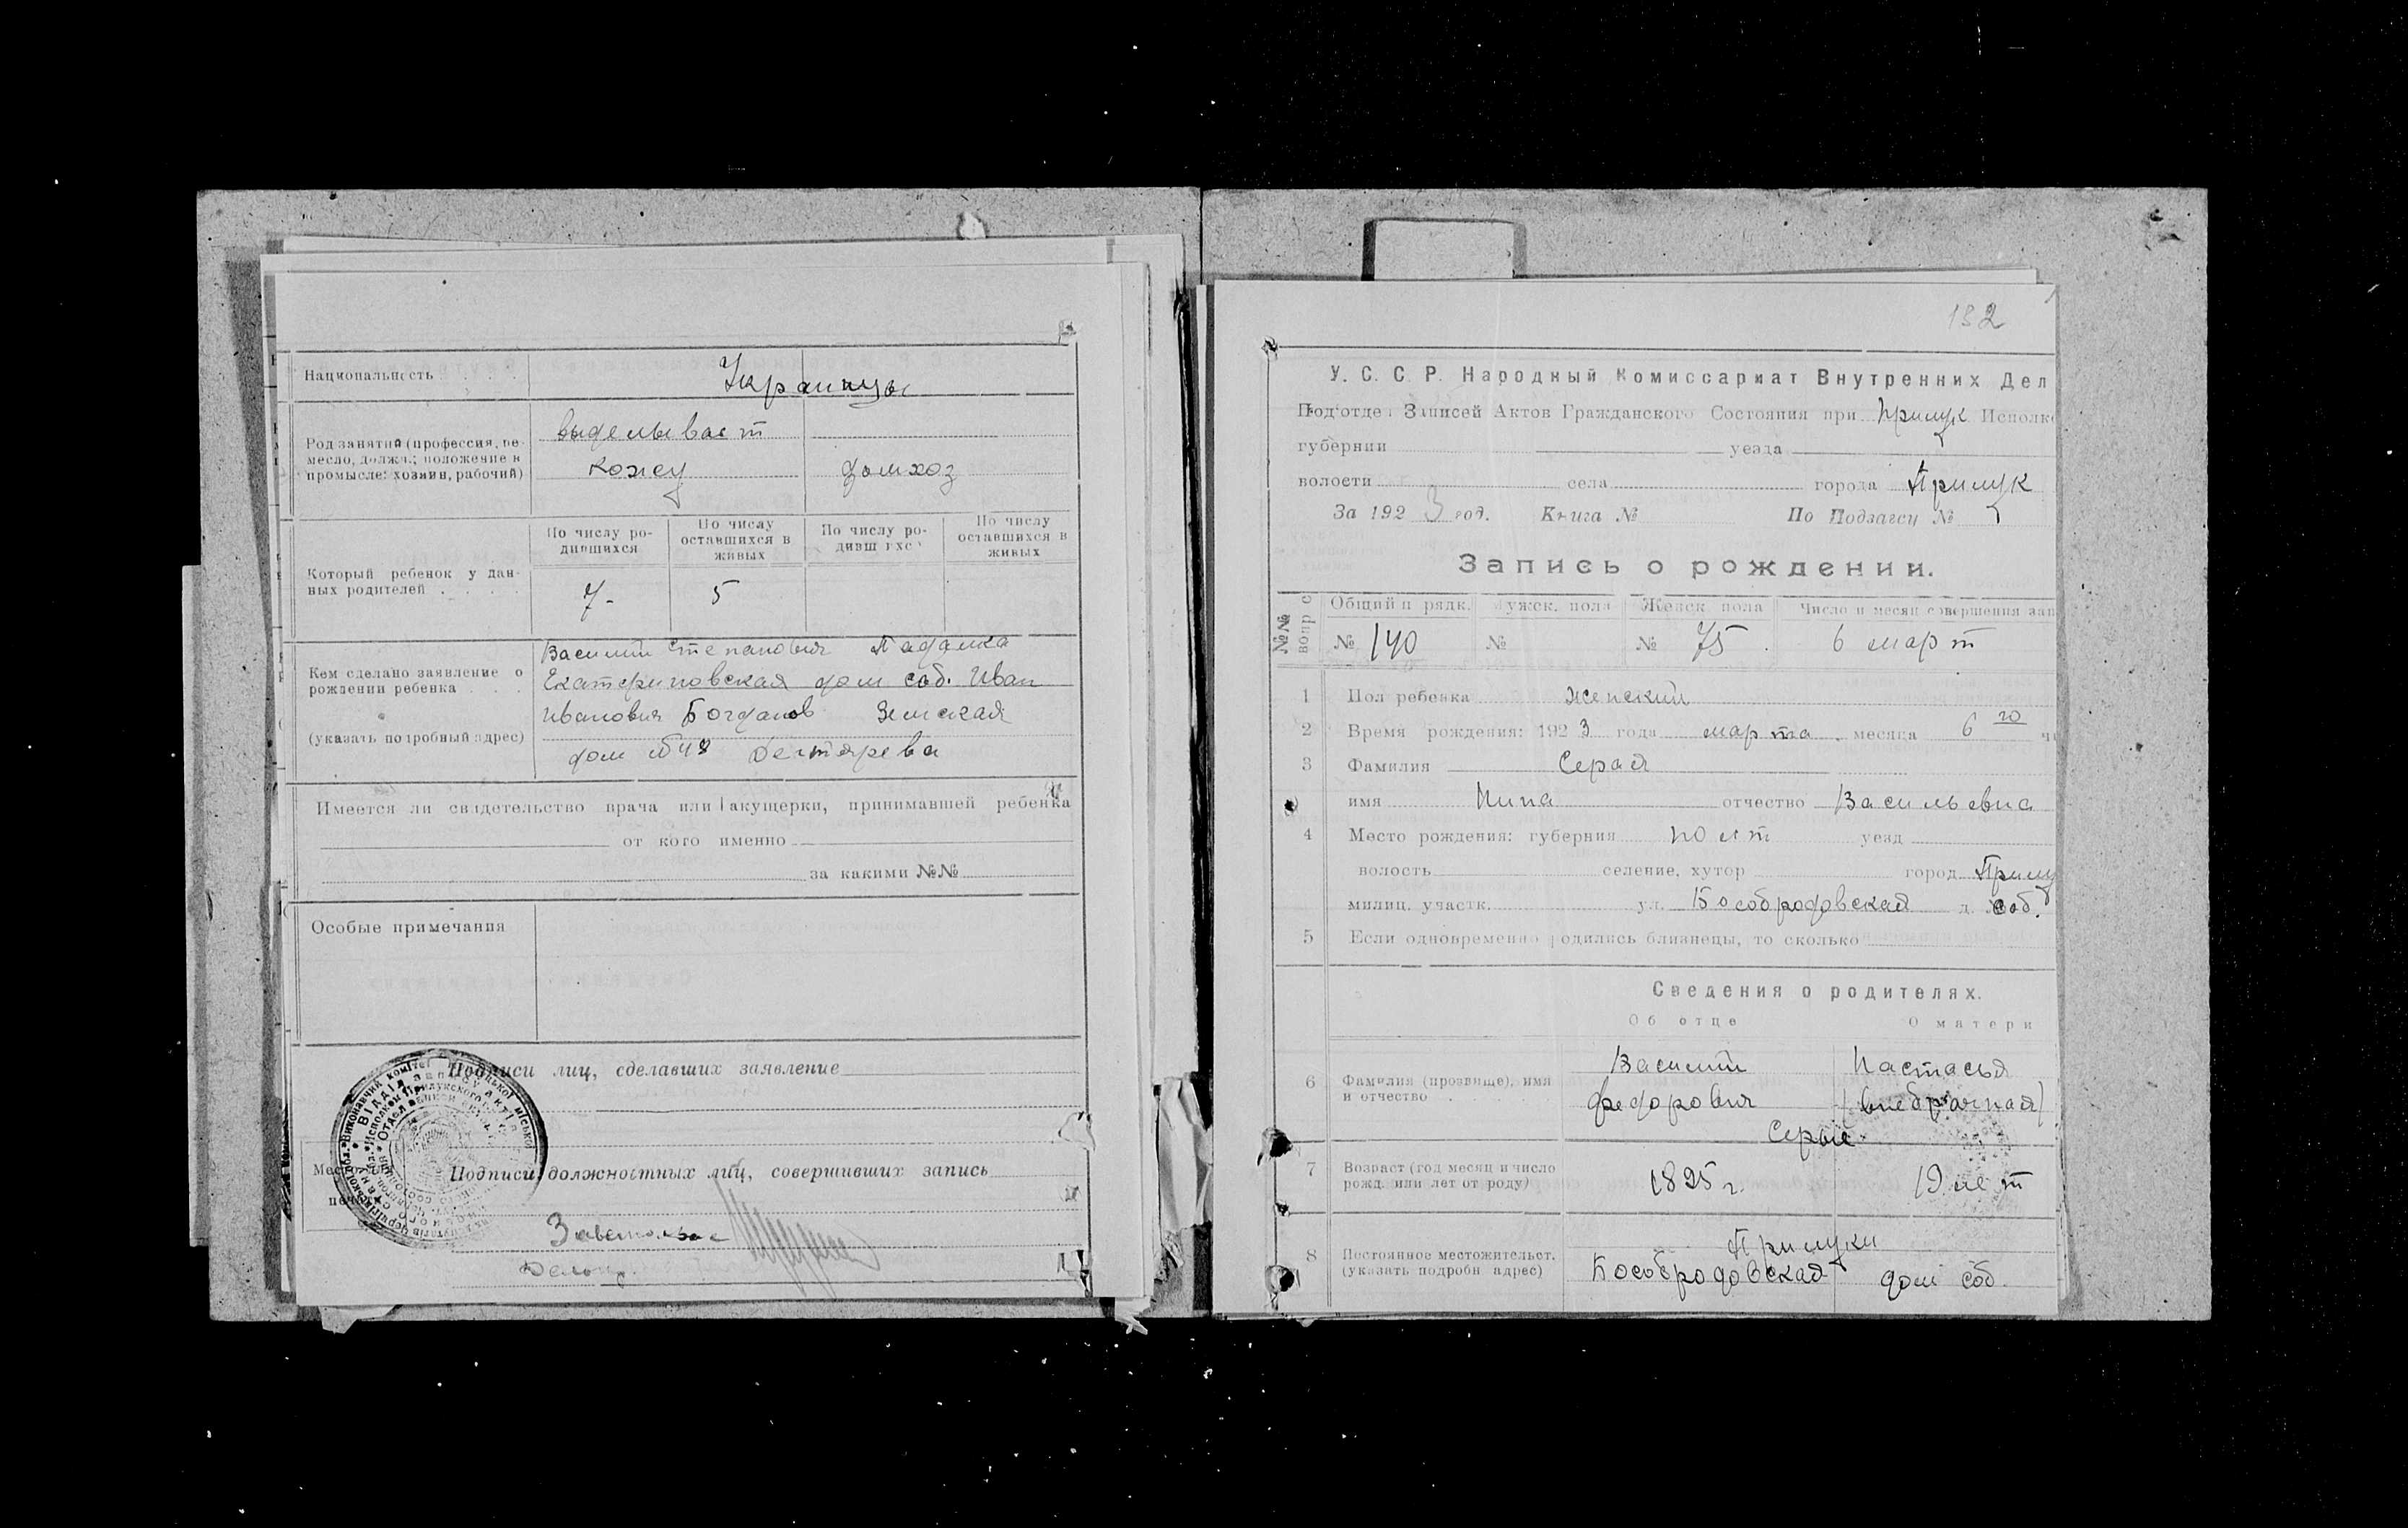 Национальность
Украинцы
Род занятий (профессия, ре-
месло, должн.; положение в
промысле: хозяин, рабочий)
выделывает
кожу
домхоз
Который ребенок у дан-
ных родителей
По числу ро-
дившихся
По числу
оставшихся в
живых
По числу ро-
дившихся
По числу
оставшихся в
живых
7-
5
Кем сделано заявление о
рождении ребенка
(указать подробный адрес)
Василий Степанович Падалка
Екатериновская дом соб. Иван
Иванович Богданов Земская
дом №48 Дегтярева
Имеется ли свидетельство врача или акушерки, принимавшей ребенка
от кого именно
за какими №№
Особые примечания
Подписи лиц, сделавших заявление
Место для
печати
Подписи должностных лиц, совершивших запись
Делопр.
132
У. С. С. Р. Народный Комиссариат Внутренних Дел
Подотдел Записей Актов Гражданского Состояния при Прилук Исполк
губернии уезда
волости села города Прилук
За 1923 год. Книга № По Подзагсу №
Запись о рождении.
№№ вопр
Общий п рядк. Мужск. пола Женск. пола Число и месяц совершения зап
№ 140 № № 75 6 март
1 Пол ребенка женский
2 Время рождения: 1923 года марта месяца 6 го
3 Фамилия Серая
имя Нина отчество Васильевна
4 Место рождения: губерния уезд
волость селение, хутор город Прилу
милиц. участк. ул. Бособродовская д. соб.
5 Если одновременно родились близнецы, то сколько
Сведения о родителях.
Об отце О матери
6 Фамилия (прозвище), имя
и отчество
Василий
Федорович
Настасья
(внебрачная)
Серые
7 Возраст (год месяц и число
рожд. или лет от роду)
1895 г.
19 лет
8 Постоянное местожительст.
(указать подробн. адрес)
Прилуки
Бособродовская дом соб.